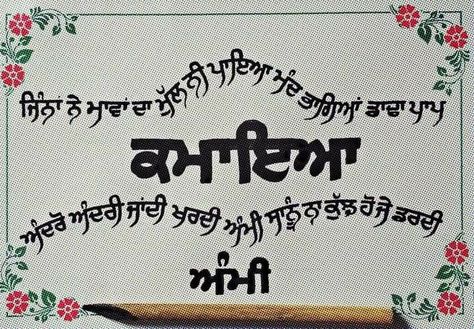 ਜਿੰਨਾਂ ਨੇ ਮਾਵਾਂ ਦਾ ਮੁੱਲ ਨੀ ਪਾਇਆ ਮੰਦ ਭਾਗਿਆਂ ਡਾਢਾ ਪਾਪ
ਕਮਾਇਆ
ਅੰਦਰੋ ਅੰਦਰੀ ਜਾਂਦੀ ਖੁਰਦੀ ਅੰਮੀ ਸਾਨੂੰ ਨਾ ਭੁੱਲ ਹੋ ਜੇ ਡਰਦੀ
ਅੰਮੀ